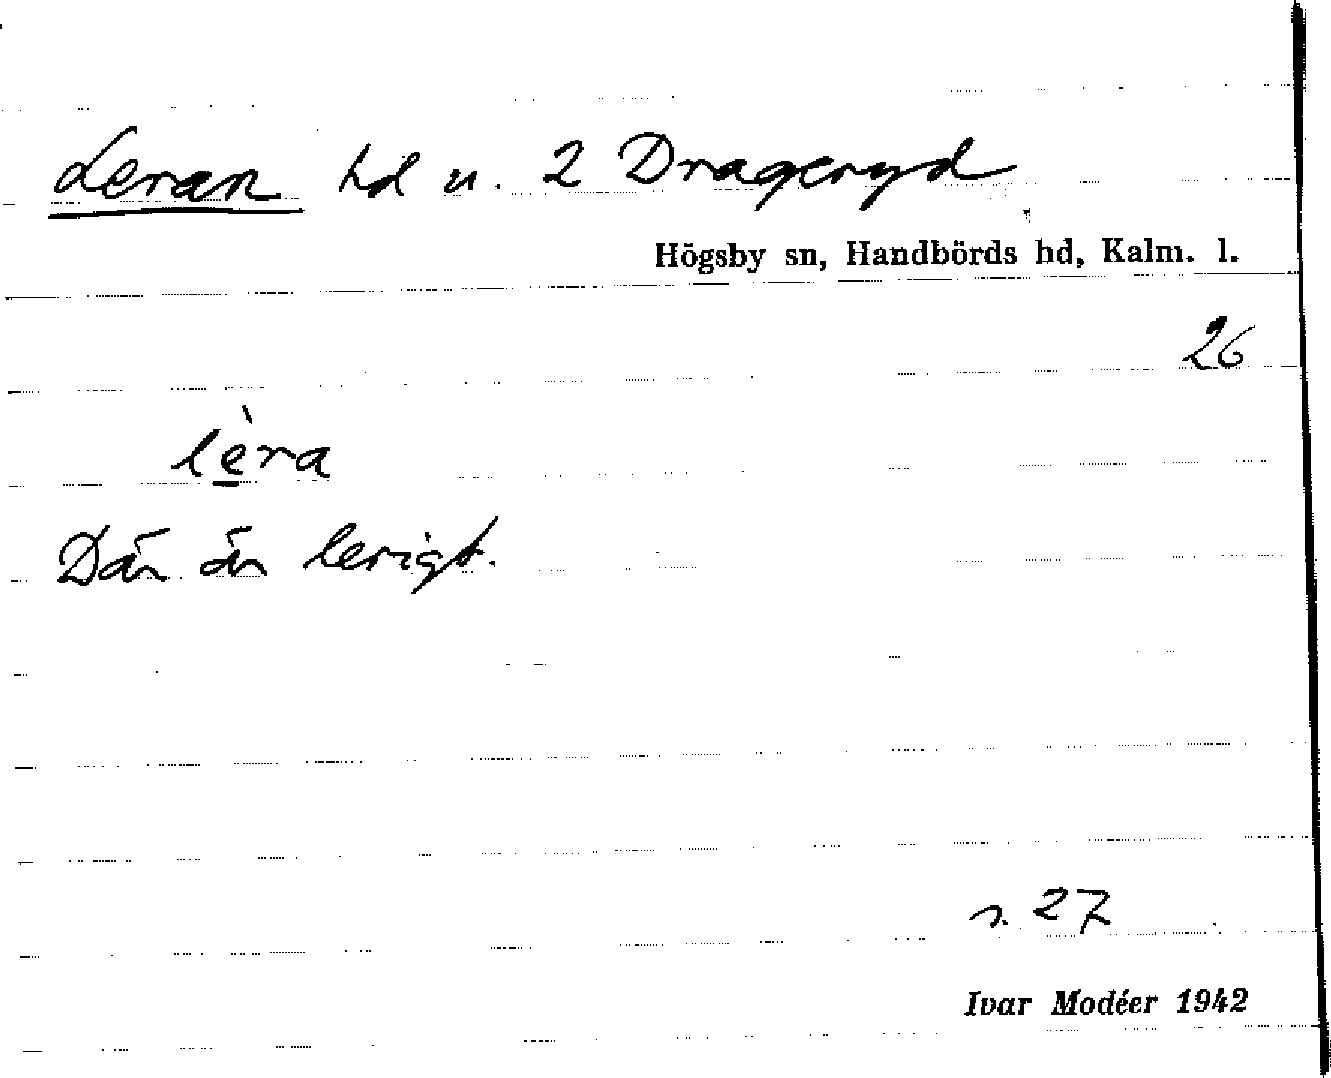 Leran hd u. 2 Drageryd
Högsby sn, Handbörds hd, Kalm. l.
26
lè̱ra
Där är lerigt.
s. 27
Ivar Modéer 1942